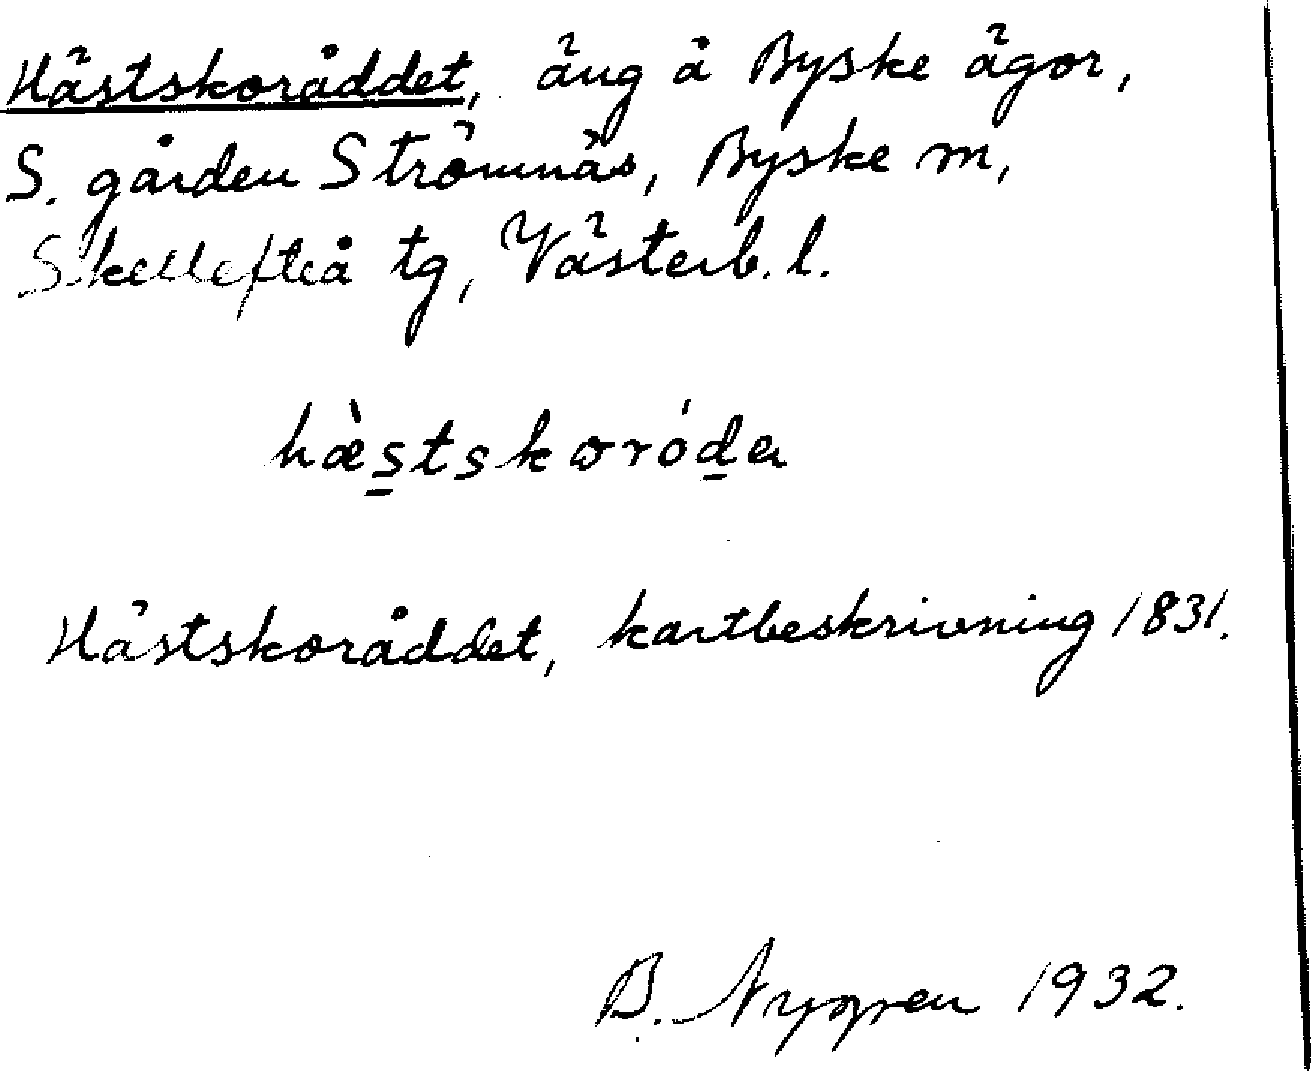 Hästskoråddet, äng å Byske ägor,
S. gården Strömnäs, Byske m,
Skellefteå tg, Västerb. l.
hæ̀s̲tskoróda
Hästskoråddet, kartbeskrivning 1831.
B. Nygren 1932.